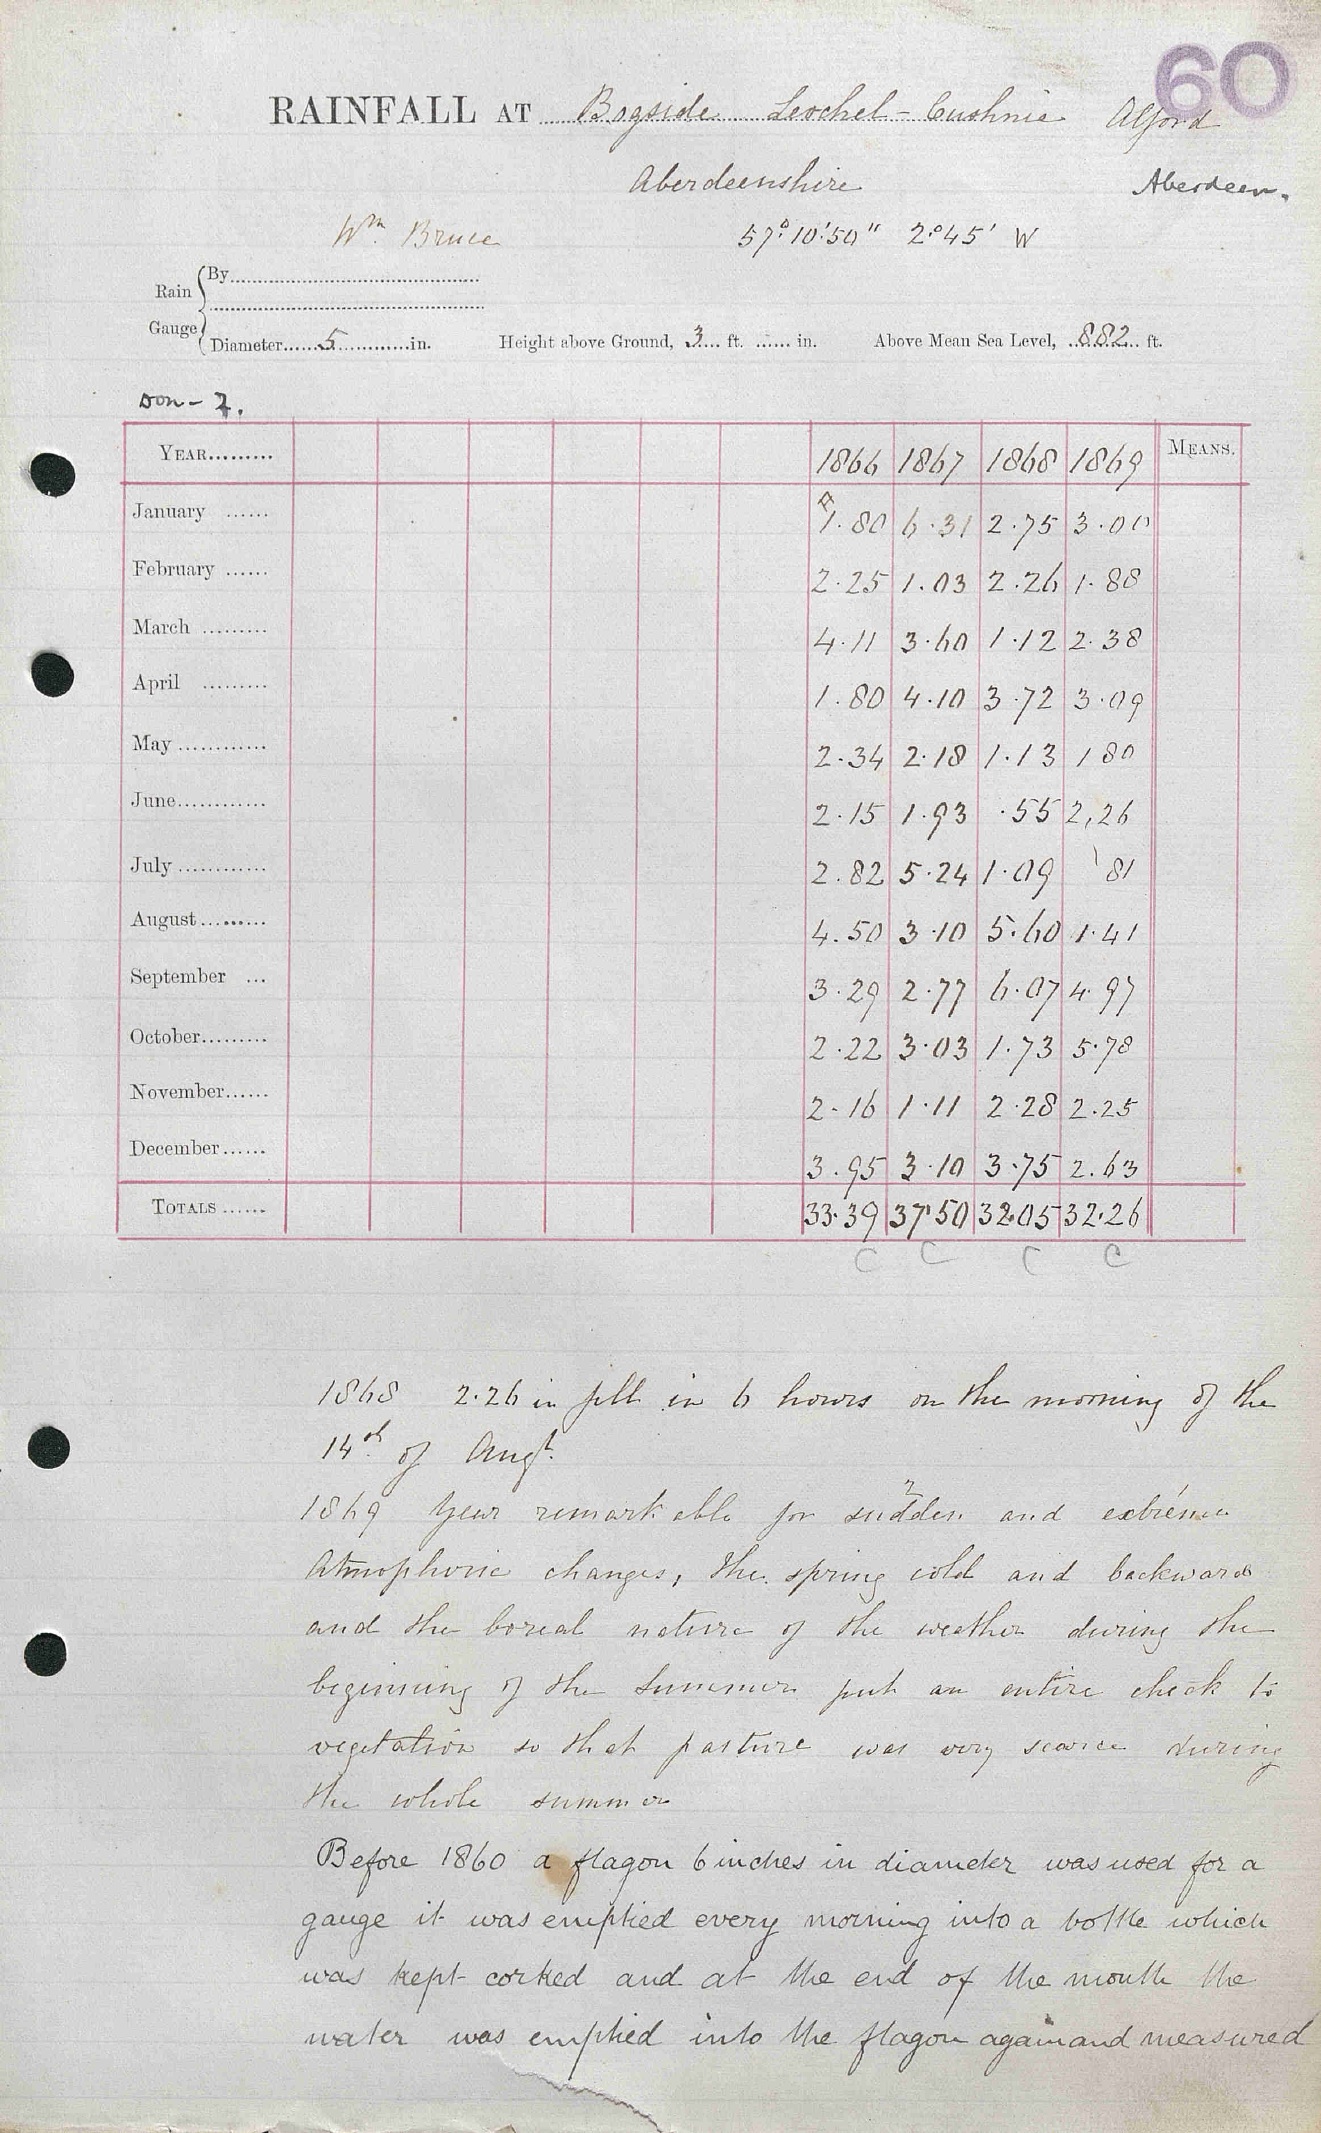 60
RAINFALL AT Bogside Leochel-Cushnie Alford
Aberdeenshire Aberdeen.
Wm. Bruce 57°10'50" 2°45' W
Rain Gauge
By
Diameter 5 in. Height above Ground, 3 ft. in. Above Mean Sea Level, 882 ft.
Don - 7.
YEAR 1866 1867 1868 1869 MEANS.
January 1.80 6.31 2.75 3.00
February 2.25 1.03 2.26 1.88
March 4.11 3.60 1.12 2.38
April 1.80 4.10 3.72 3.09
May 2.34 2.18 1.13 1 80
June 2.15 1.93 .55 2,26
July 2.82 5.24 1.09 81
August 4.50 3.10 5.60 1.41
September 3.29 2.77 6.07 4.97
October 2.22 3.03 1.73 5.78
November 2.16 1.11 2.28 2.25
December 3.95 3.10 3.75 2.63
TOTALS 33.39 37.50 32.05 32.26
C C C C
1868 2.26 in fell in 6 hours on the morning of the
14th of Augt.
1869 Year remarkable for sudden and extreme
Atmospheric changes, the spring cold and backward
and the boreal nature of the weather during the
beginning of the Summer put an entire check to
vegetation so that pasture was very scarce during
the whole summer
Before 1860 a flagon 6 inches in diameter was used for a
gauge it was emptied every morning into a bottle which
was kept corked and at the end of the month the
water was emptied into the flagon again and measured